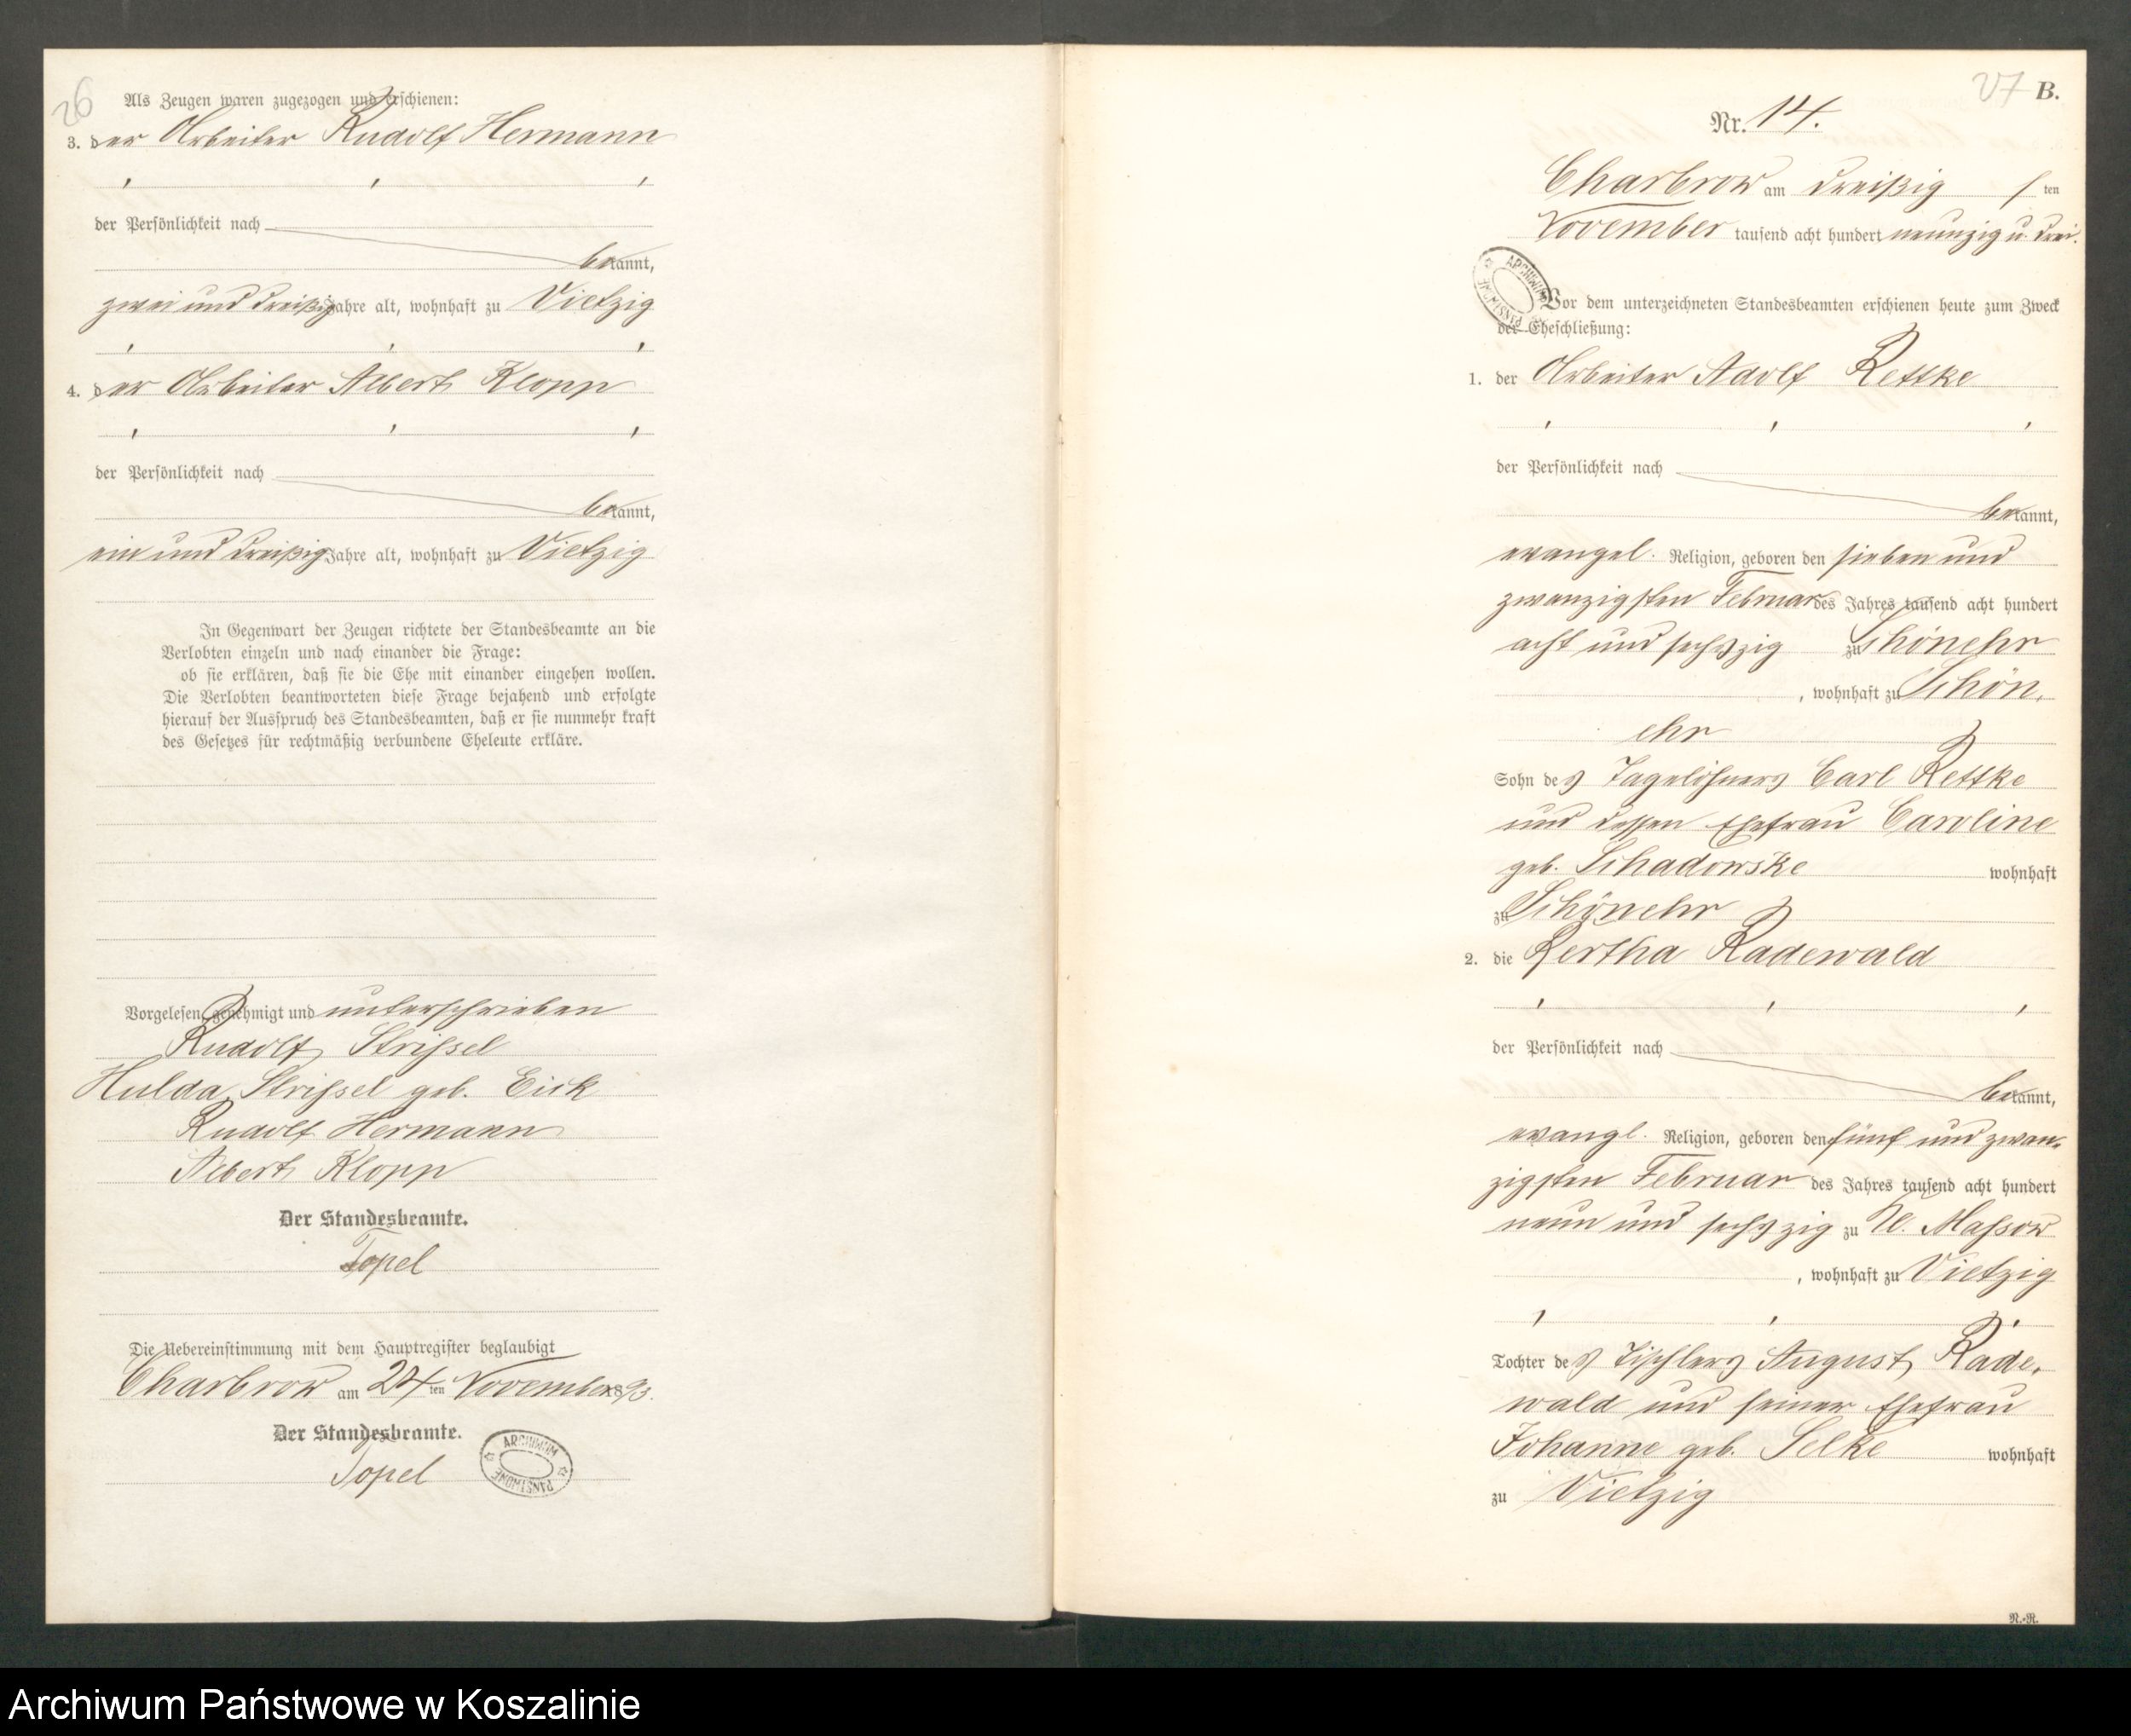 26
Als Zeugen waren zugezogen und erschienen:
3. der Arbeiter Rudolf Hermann
der Persönlichkeit nach
bekannt,
zwei und dreißig Jahre alt, wohnhaft zu Vietzig
4. der Arbeiter Albert Klopp
der Persönlichkeit nach
bekannt,
ein und dreißig Jahre alt, wohnhaft zu Vietzig
In Gegenwart der Zeugen richtete der Standesbeamte an die
Verlobten einzeln und nach einander die Frage:
ob sie erklären, daß sie die Ehe mit einander eingehen wollen.
Die Verlobten beantworteten diese Frage bejahend und erfolgte
hierauf der Ausspruch des Standesbeamten, daß er sie nunmehr kraft
des Gesetzes für rechtmäßig verbundene Eheleute erkläre.
Vorgelesen, genehmigt und unterschrieben
Rudolf Strißel
Hulda Strißel geb. Eick
Rudolf Hermann
Albert Klopp
Der Standesbeamte.
Topel
Die Uebereinstimmung mit dem Hauptregister beglaubigt
Charbrow am 24 ten November 1893.
Der Standesbeamte.
Topel
ARCHIWUM PAŃSTWOWE
27 B.
Nr. 14.
Charbrow am dreißig ten
November tausend acht hundert neunzig u. drei.
ARCHIWUM PAŃSTWOWE
Vor dem unterzeichneten Standesbeamten erschienen heute zum Zweck
der Eheschließung:
1. der Arbeiter Adolf Rettke
der Persönlichkeit nach
bekannt,
evangel. Religion, geboren den sieben und
zwanzigsten Februar des Jahres tausend acht hundert
acht und sechszig zu Schönehr
, wohnhaft zu Schön,
ehr
Sohn des Tagelöhners Carl Rettke
und dessen Ehefrau Caroline
geb. Schadowske wohnhaft
zu Schönehr
2. die Bertha Radewald
der Persönlichkeit nach
bekannt,
evangl. Religion, geboren den fünf und zwan-
zigsten Februar des Jahres tausend acht hundert
neun und sechszig zu Kl. Maßow
, wohnhaft zu Vietzig
Tochter des Tischlers August Rade,
wald und seiner Ehefrau
Johanne geb. Selke wohnhaft
zu Vietzig
N.-R.
Archiwum Państwowe w Koszalinie